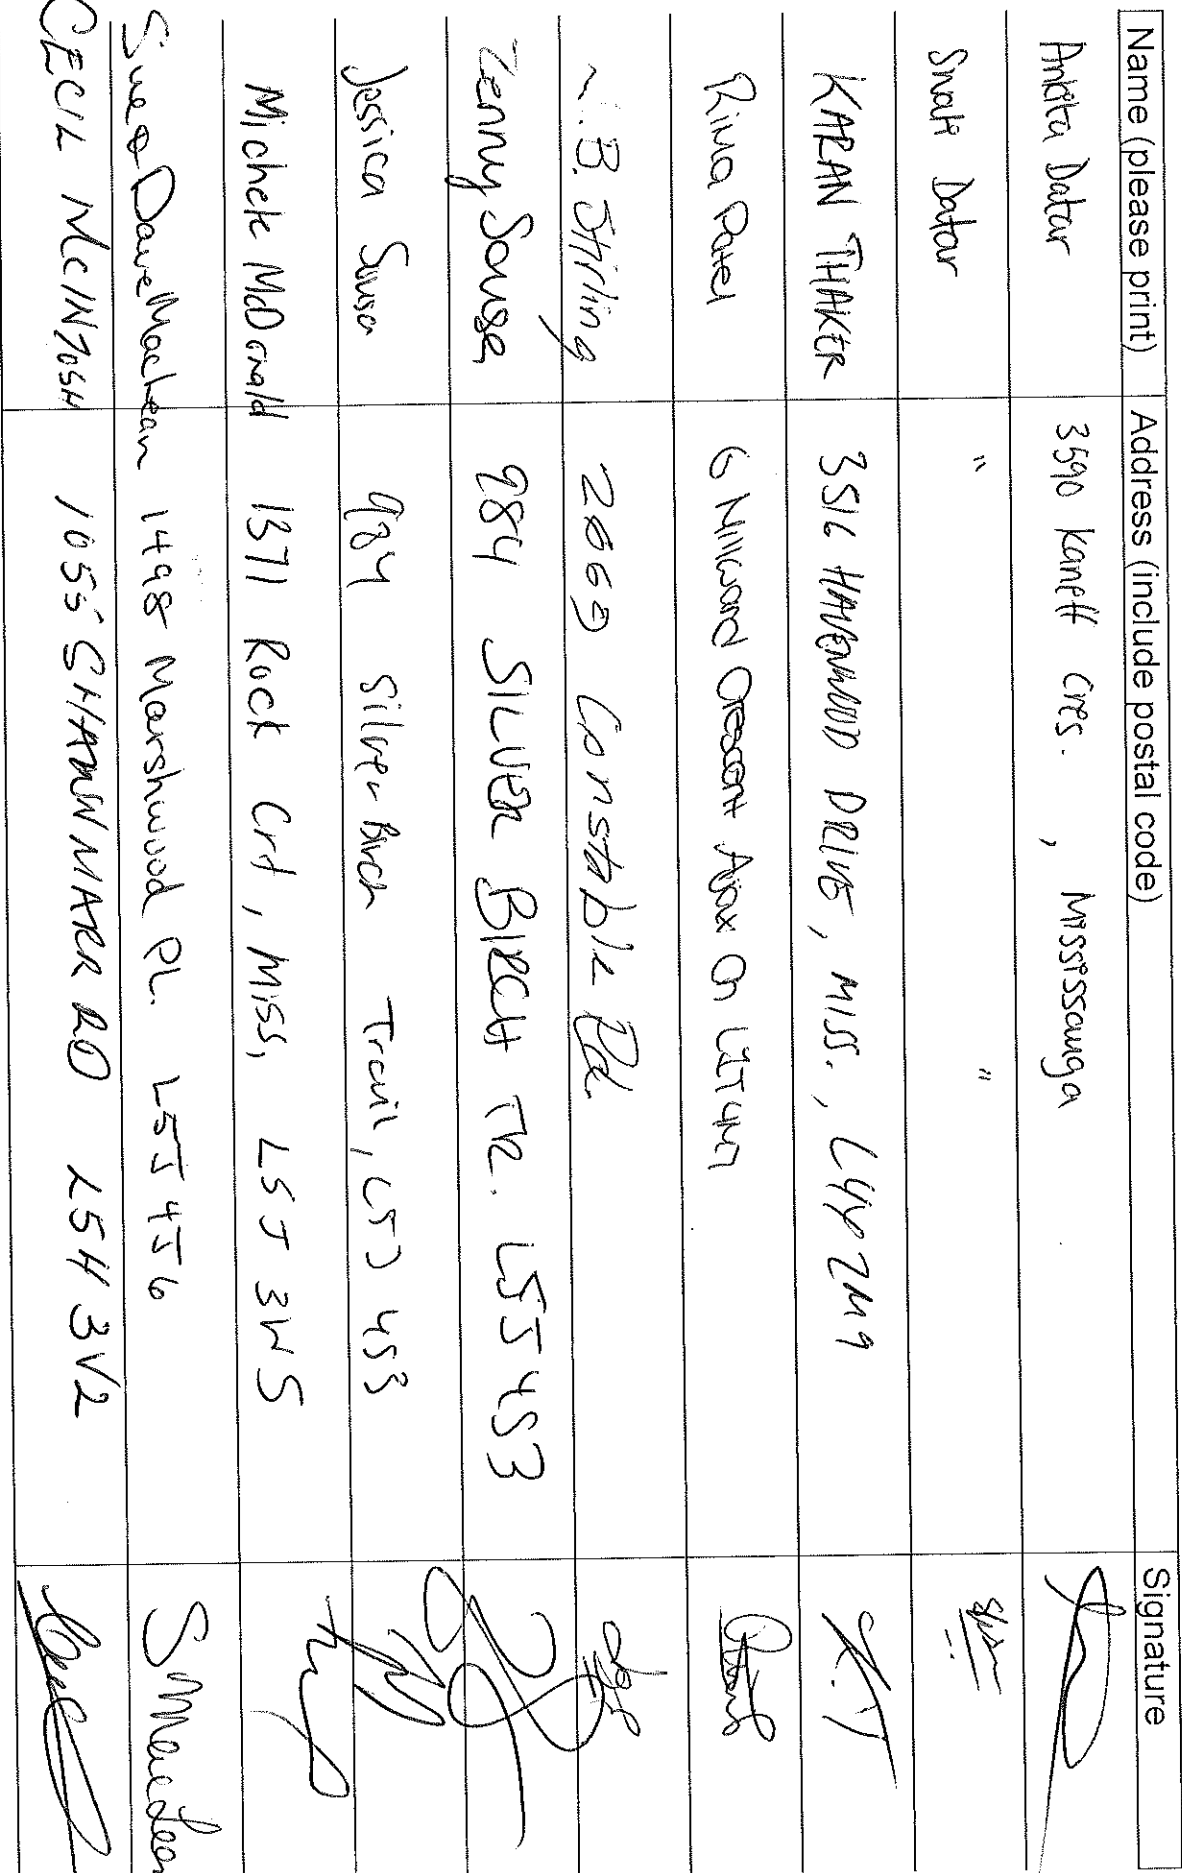 Name (please print) Address (include postal code) Signature
Ankita Datar 3590 Kaneff Cres. , Mississauga
Swati Datar " "
KARAN THAKER 3516 HAVENWOOD DRIVE, MISS., L4Y 2M9 K.T
Rima Patel 6 Millward Crescent Ajax On L1T4M7
B. Stirling 2669 Constable Rd.
Zenny Sousa 984 SILVER BIRCH TR. L5J 4S3
Jessica Sousa 984 Silver Birch Trail, L5J 4S3
Michele McDonald 1371 Rock Crt, Miss, L5J 3W5
Sue & Dave MacLean 1498 Marshwood PL. L5J 4J6 S MacLean
CECIL McINTOSH 1055 SHAWNMARR RD L5H 3V2